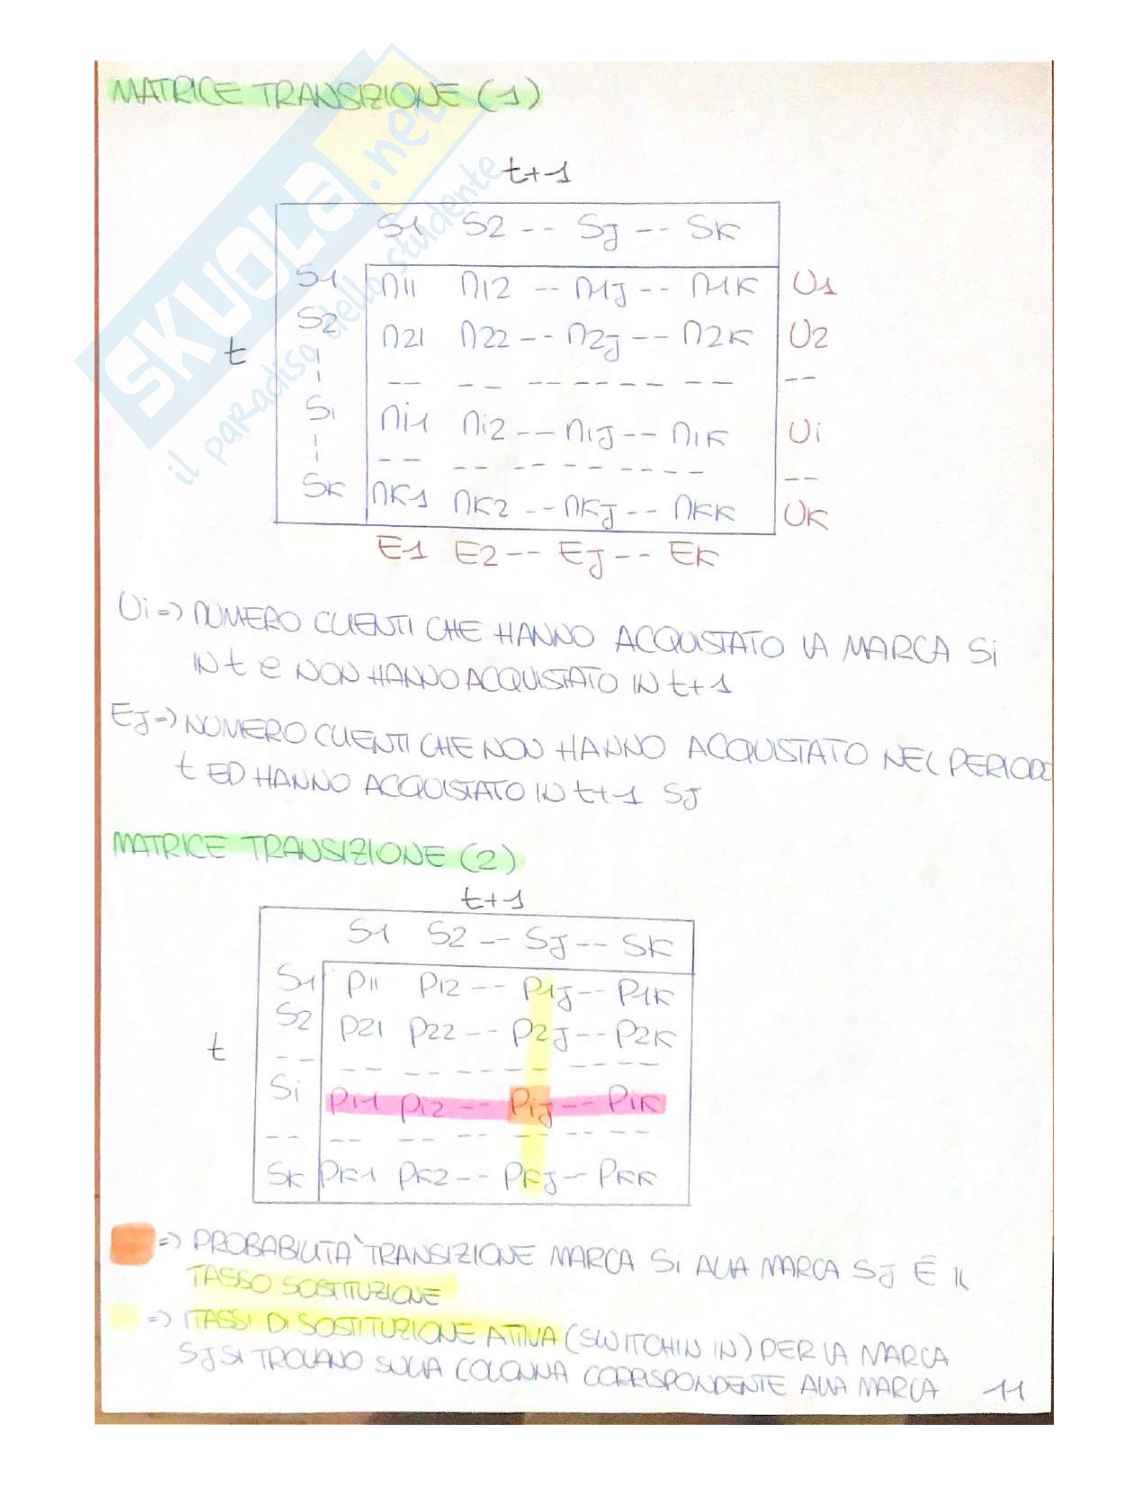 MATRICE TRANSIZIONE (1)
t+1
S1 S2 -- SJ -- SK
S1 n11 n12 -- n1J -- n1K U1
S2 n21 n22 -- n2J -- n2K U2
t
-- -- -- -- -- -- -- --
Si ni1 ni2 -- niJ -- niK Ui
-- -- -- -- -- -- -- --
SK nK1 nK2 -- nKJ -- nKK UK
E1 E2 -- EJ -- EK
Ui => NUMERO CLIENTI CHE HANNO ACQUISTATO LA MARCA Si
IN t e NON HANNO ACQUISTATO IN t+1
EJ => NUMERO CLIENTI CHE NON HANNO ACQUISTATO NEL PERIODO
t ED HANNO ACQUISTATO IN t+1 SJ
MATRICE TRANSIZIONE (2)
t+1
S1 S2 -- SJ -- SK
S1 P11 P12 -- P1J -- P1K
S2 P21 P22 -- P2J -- P2K
t
-- -- -- -- -- -- --
Si Pi1 Pi2 -- PiJ -- PiK
-- -- -- -- -- -- --
SK PK1 PK2 -- PKJ -- PKK
=> PROBABILITÀ TRANSIZIONE MARCA Si ALLA MARCA SJ È IL
TASSO SOSTITUZIONE
=> I TASSI DI SOSTITUZIONE ATTIVA (SWITCHIN IN) PER LA MARCA
SJ SI TROVANO SULLA COLONNA CORRISPONDENTE ALLA MARCA 11
SKUOLA.net
il paradiso dello studente